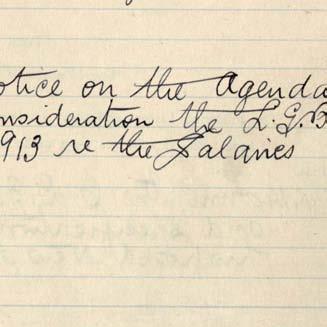 otice on the Agenda
nsideration the L.G.B
913 re the Salaries